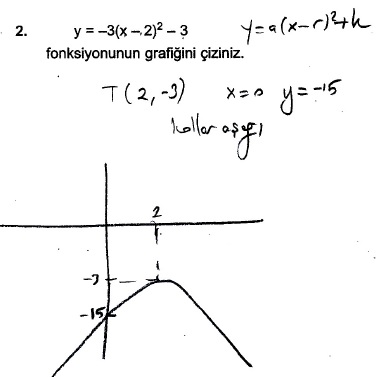 2. y = –3(x – 2)² – 3 y=a(x-r)²+k
fonksiyonunun grafiğini çiziniz.
T(2,-3) x=0 y=-15
kollar aşağı
2
-3
-15